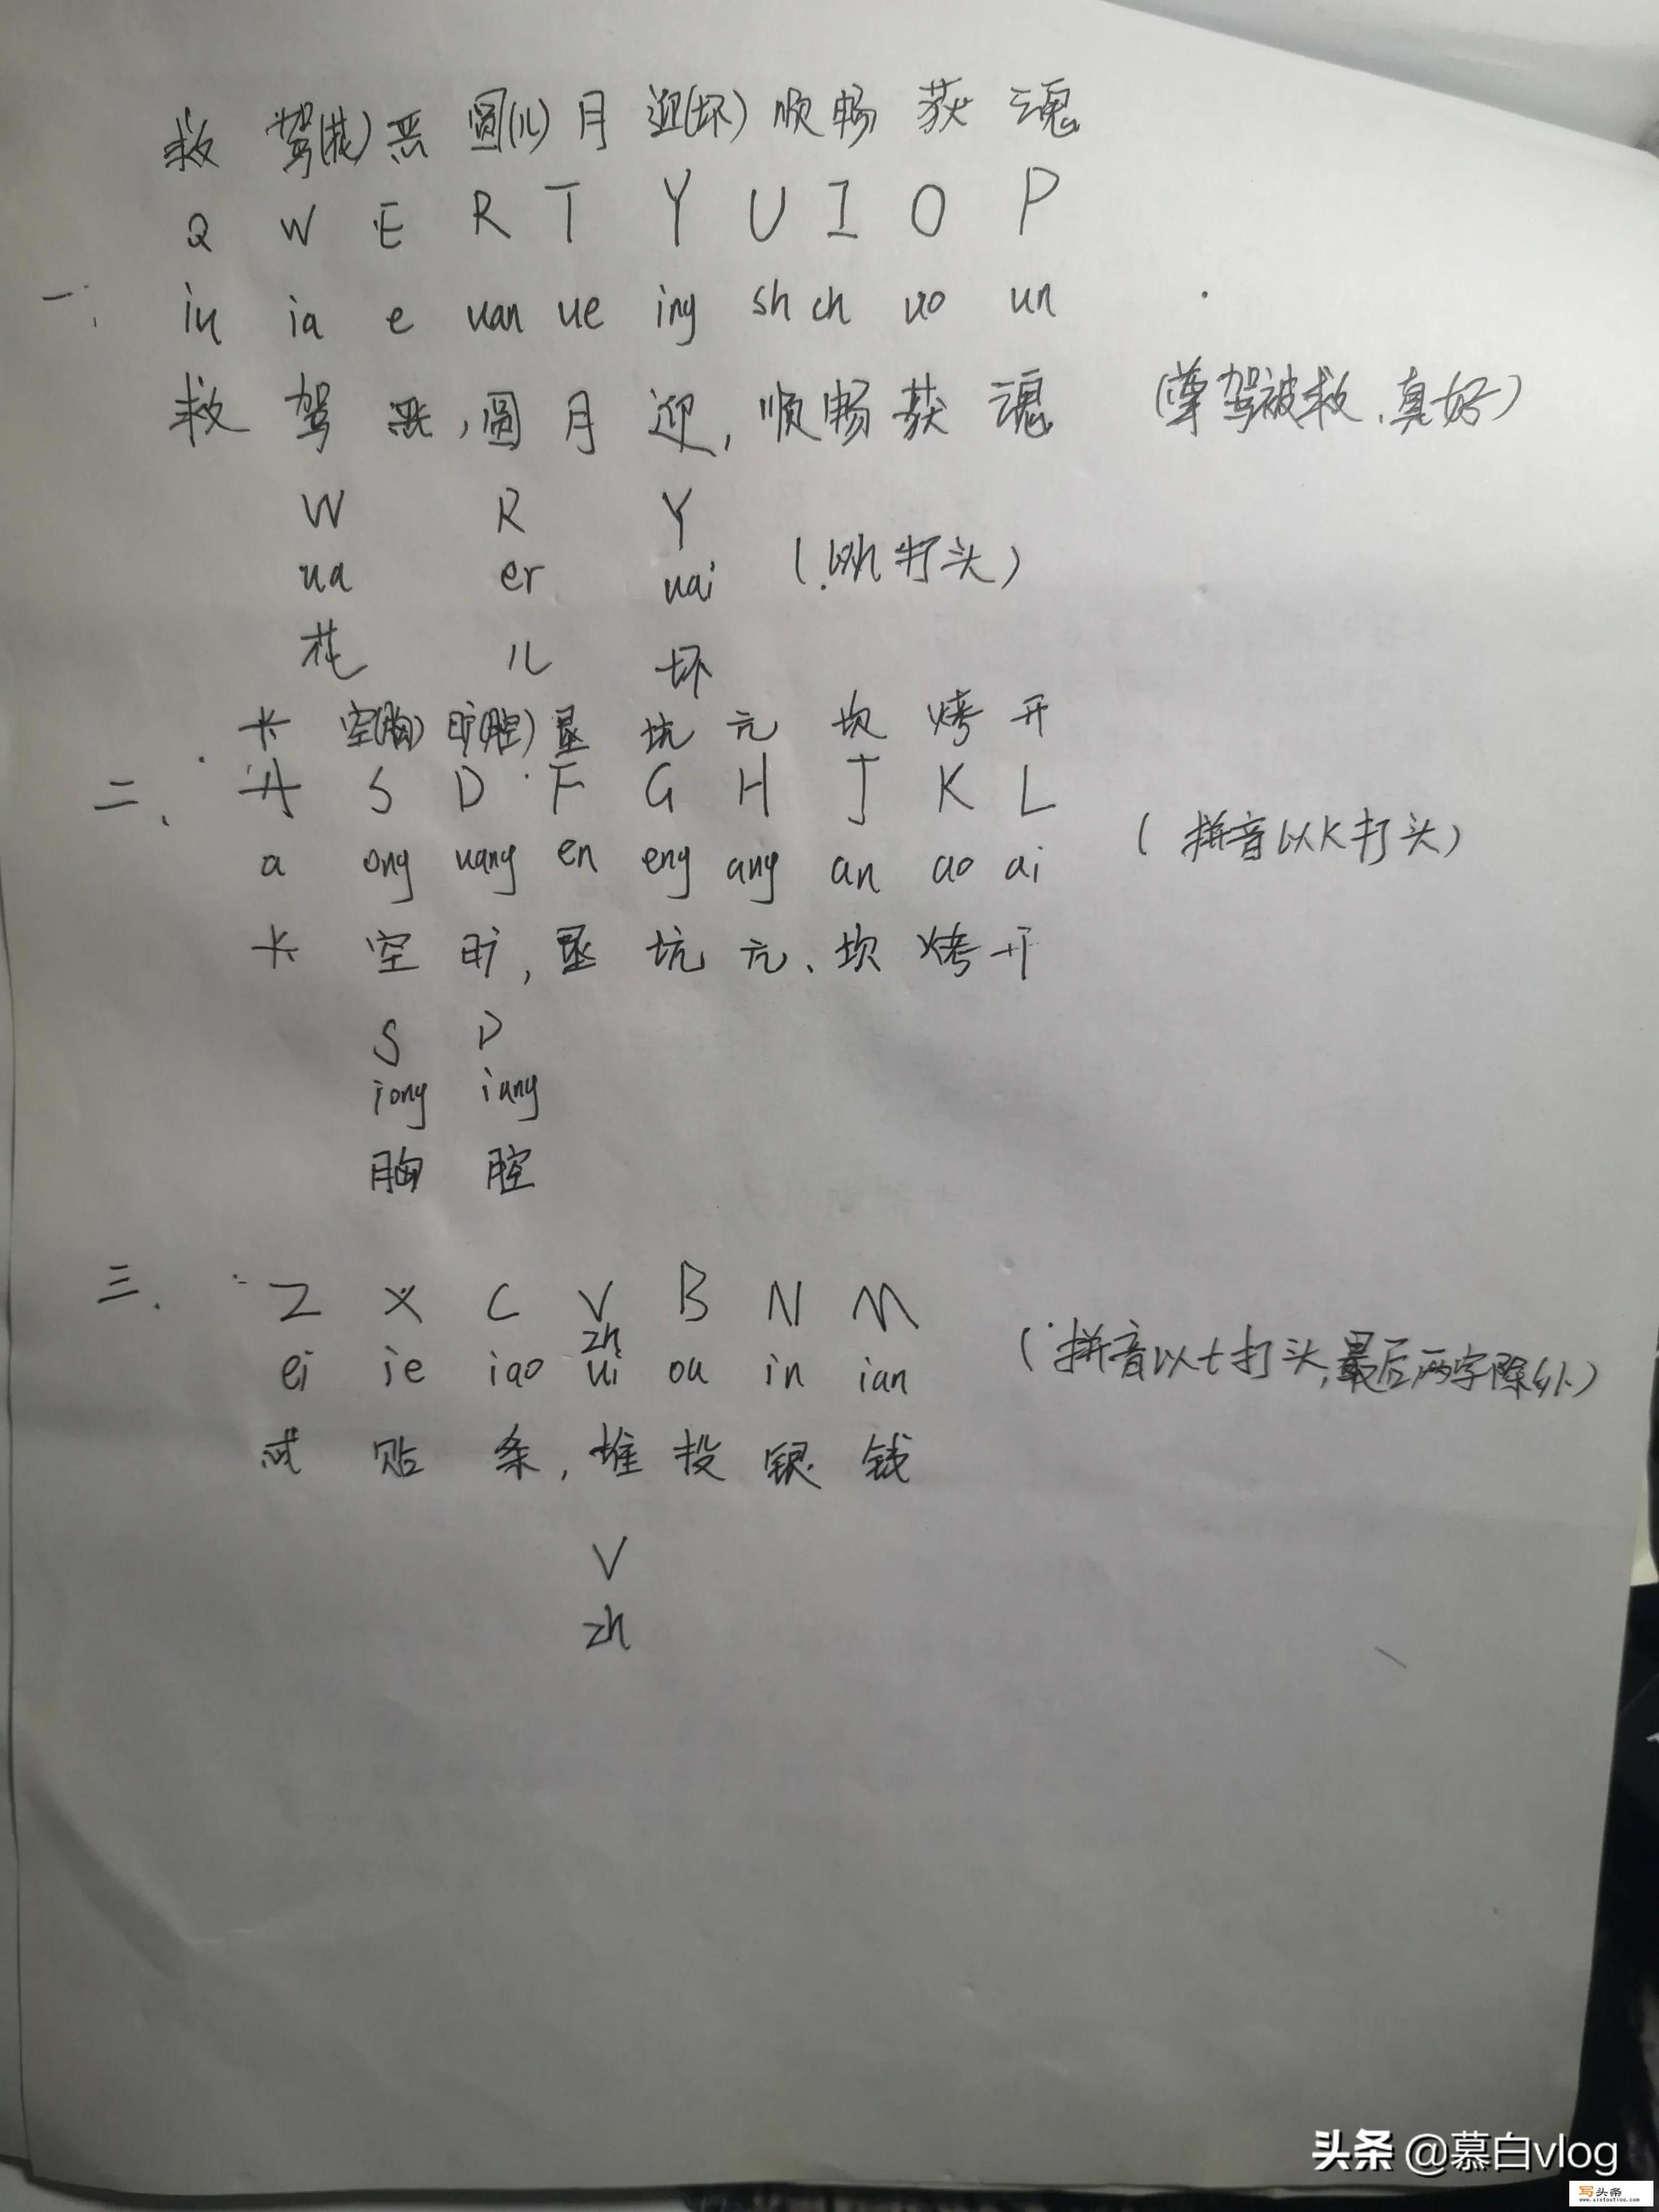 救 驾(花) 恶 圆(儿) 月 迎(坏) 顺 畅 获 魂
Q W E R T Y U I O P
一、 iu ia e uan ue ing sh ch uo un
救 驾 恶，圆 月 迎，顺 畅 获 魂 (尊驾被救、真好)
W R Y
ua er uai (以h打头)
花 儿 坏
卡 空(胸) 旷(腔) 垦 坑 亢 坎 烤 开
二、 A S D F G H J K L
a ong uang en eng ang an ao ai (拼音以K打头)
卡 空 旷，垦 坑 亢、坎 烤 开
S D
iong iang
胸 腔
三、 Z X C V B N M
zh
ei ie iao ui ou in ian (拼音以t打头，最后两字除外)
贴 条，堆 投 银 钱
V
zh
头条 @慕白vlog
写头条